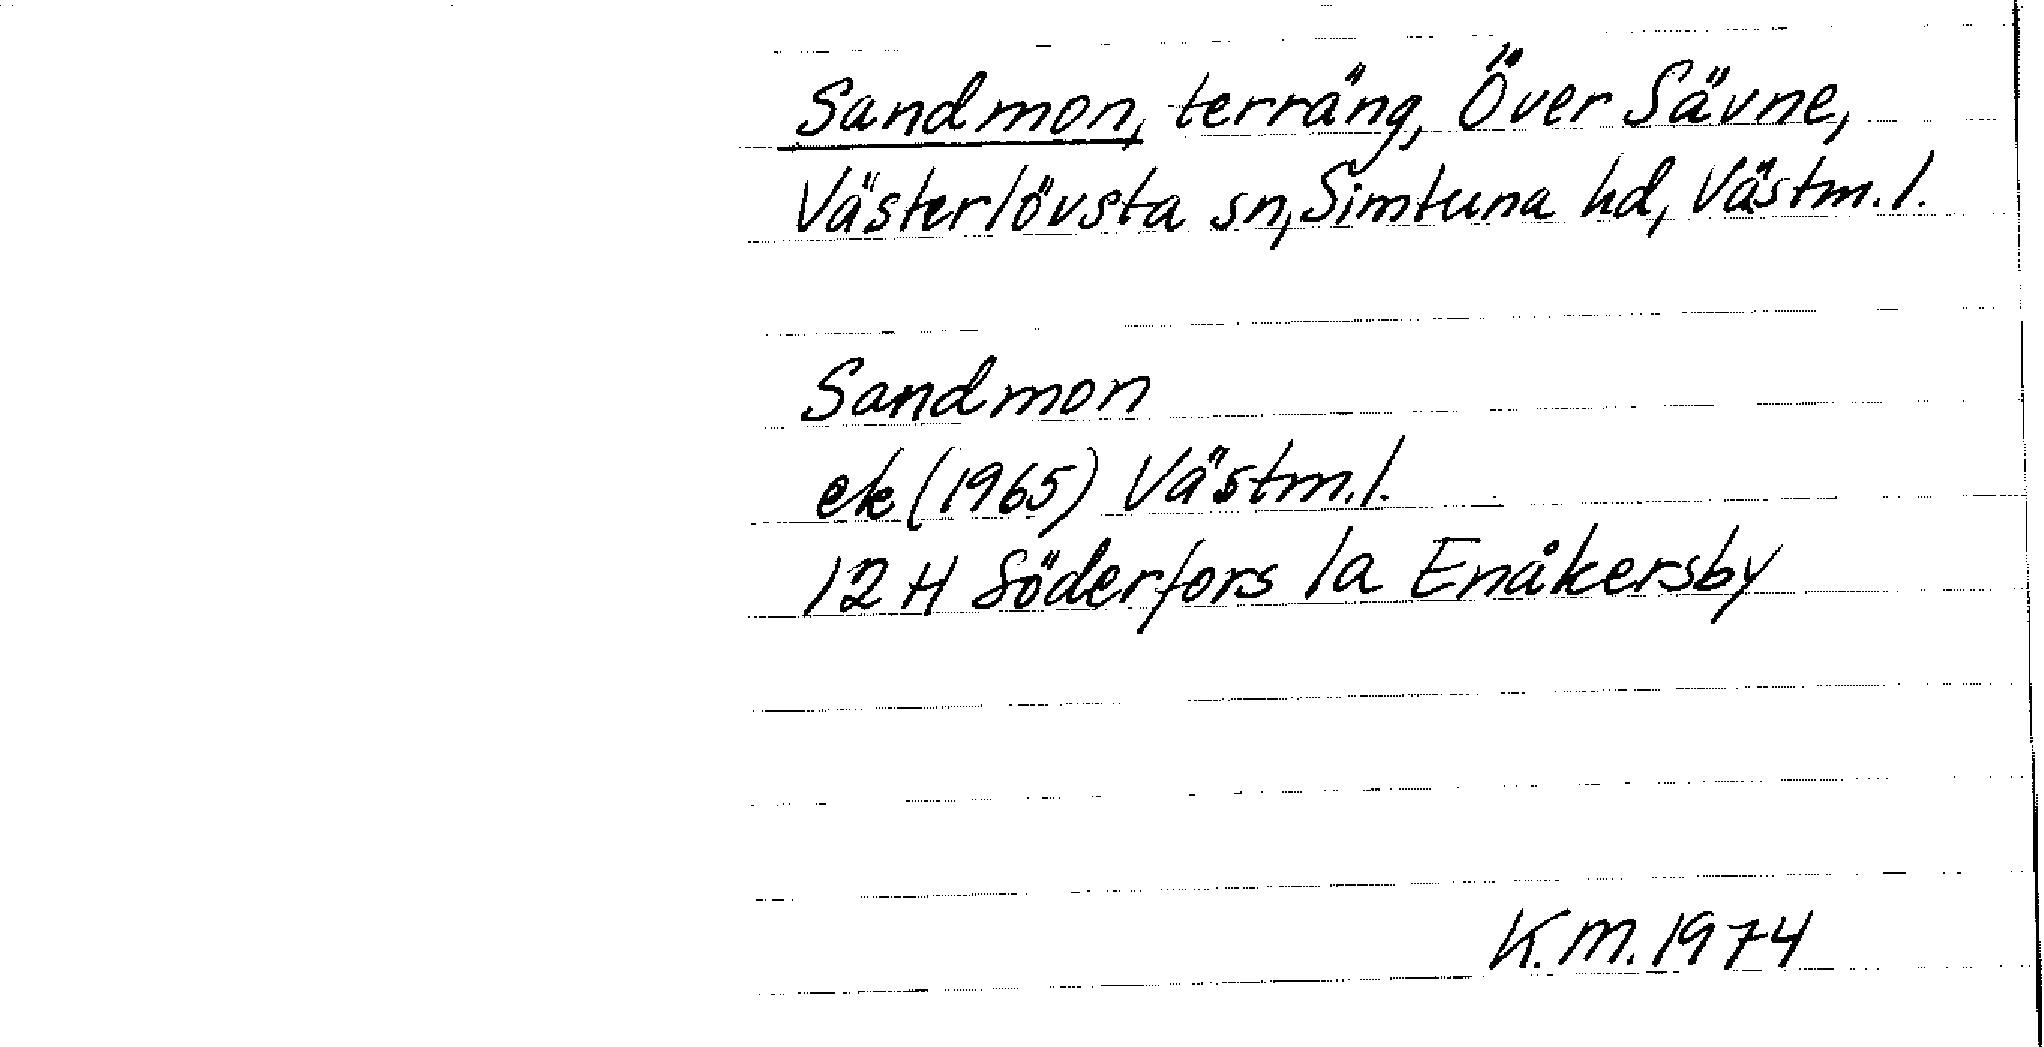 Sandmon, terräng, Över Sävne,
Västerlövsta sn, Simtuna hd, Västm.l.
Sandmon
ek (1965) Västm.l.
12 H Söderfors 1a Enåkersby
K.M. 1974